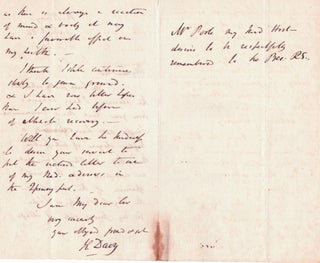 as there is always a reaction
of mind & body it may
have a favorable effect on
my health.
I think I still continue
slowly to gain ground.
& I have now better hopes
than I ever had before
of ultimate recovery.
Will you have the kindness
to desire your servant to
put the enclosed letter to one
of my address in
the 2penny post.
I am My dear Sir
very sincerely
your obliged friend & sert
H Davy
Mr Poole my kind Host
desires to be respectfully
remembered to the Pres. RS.